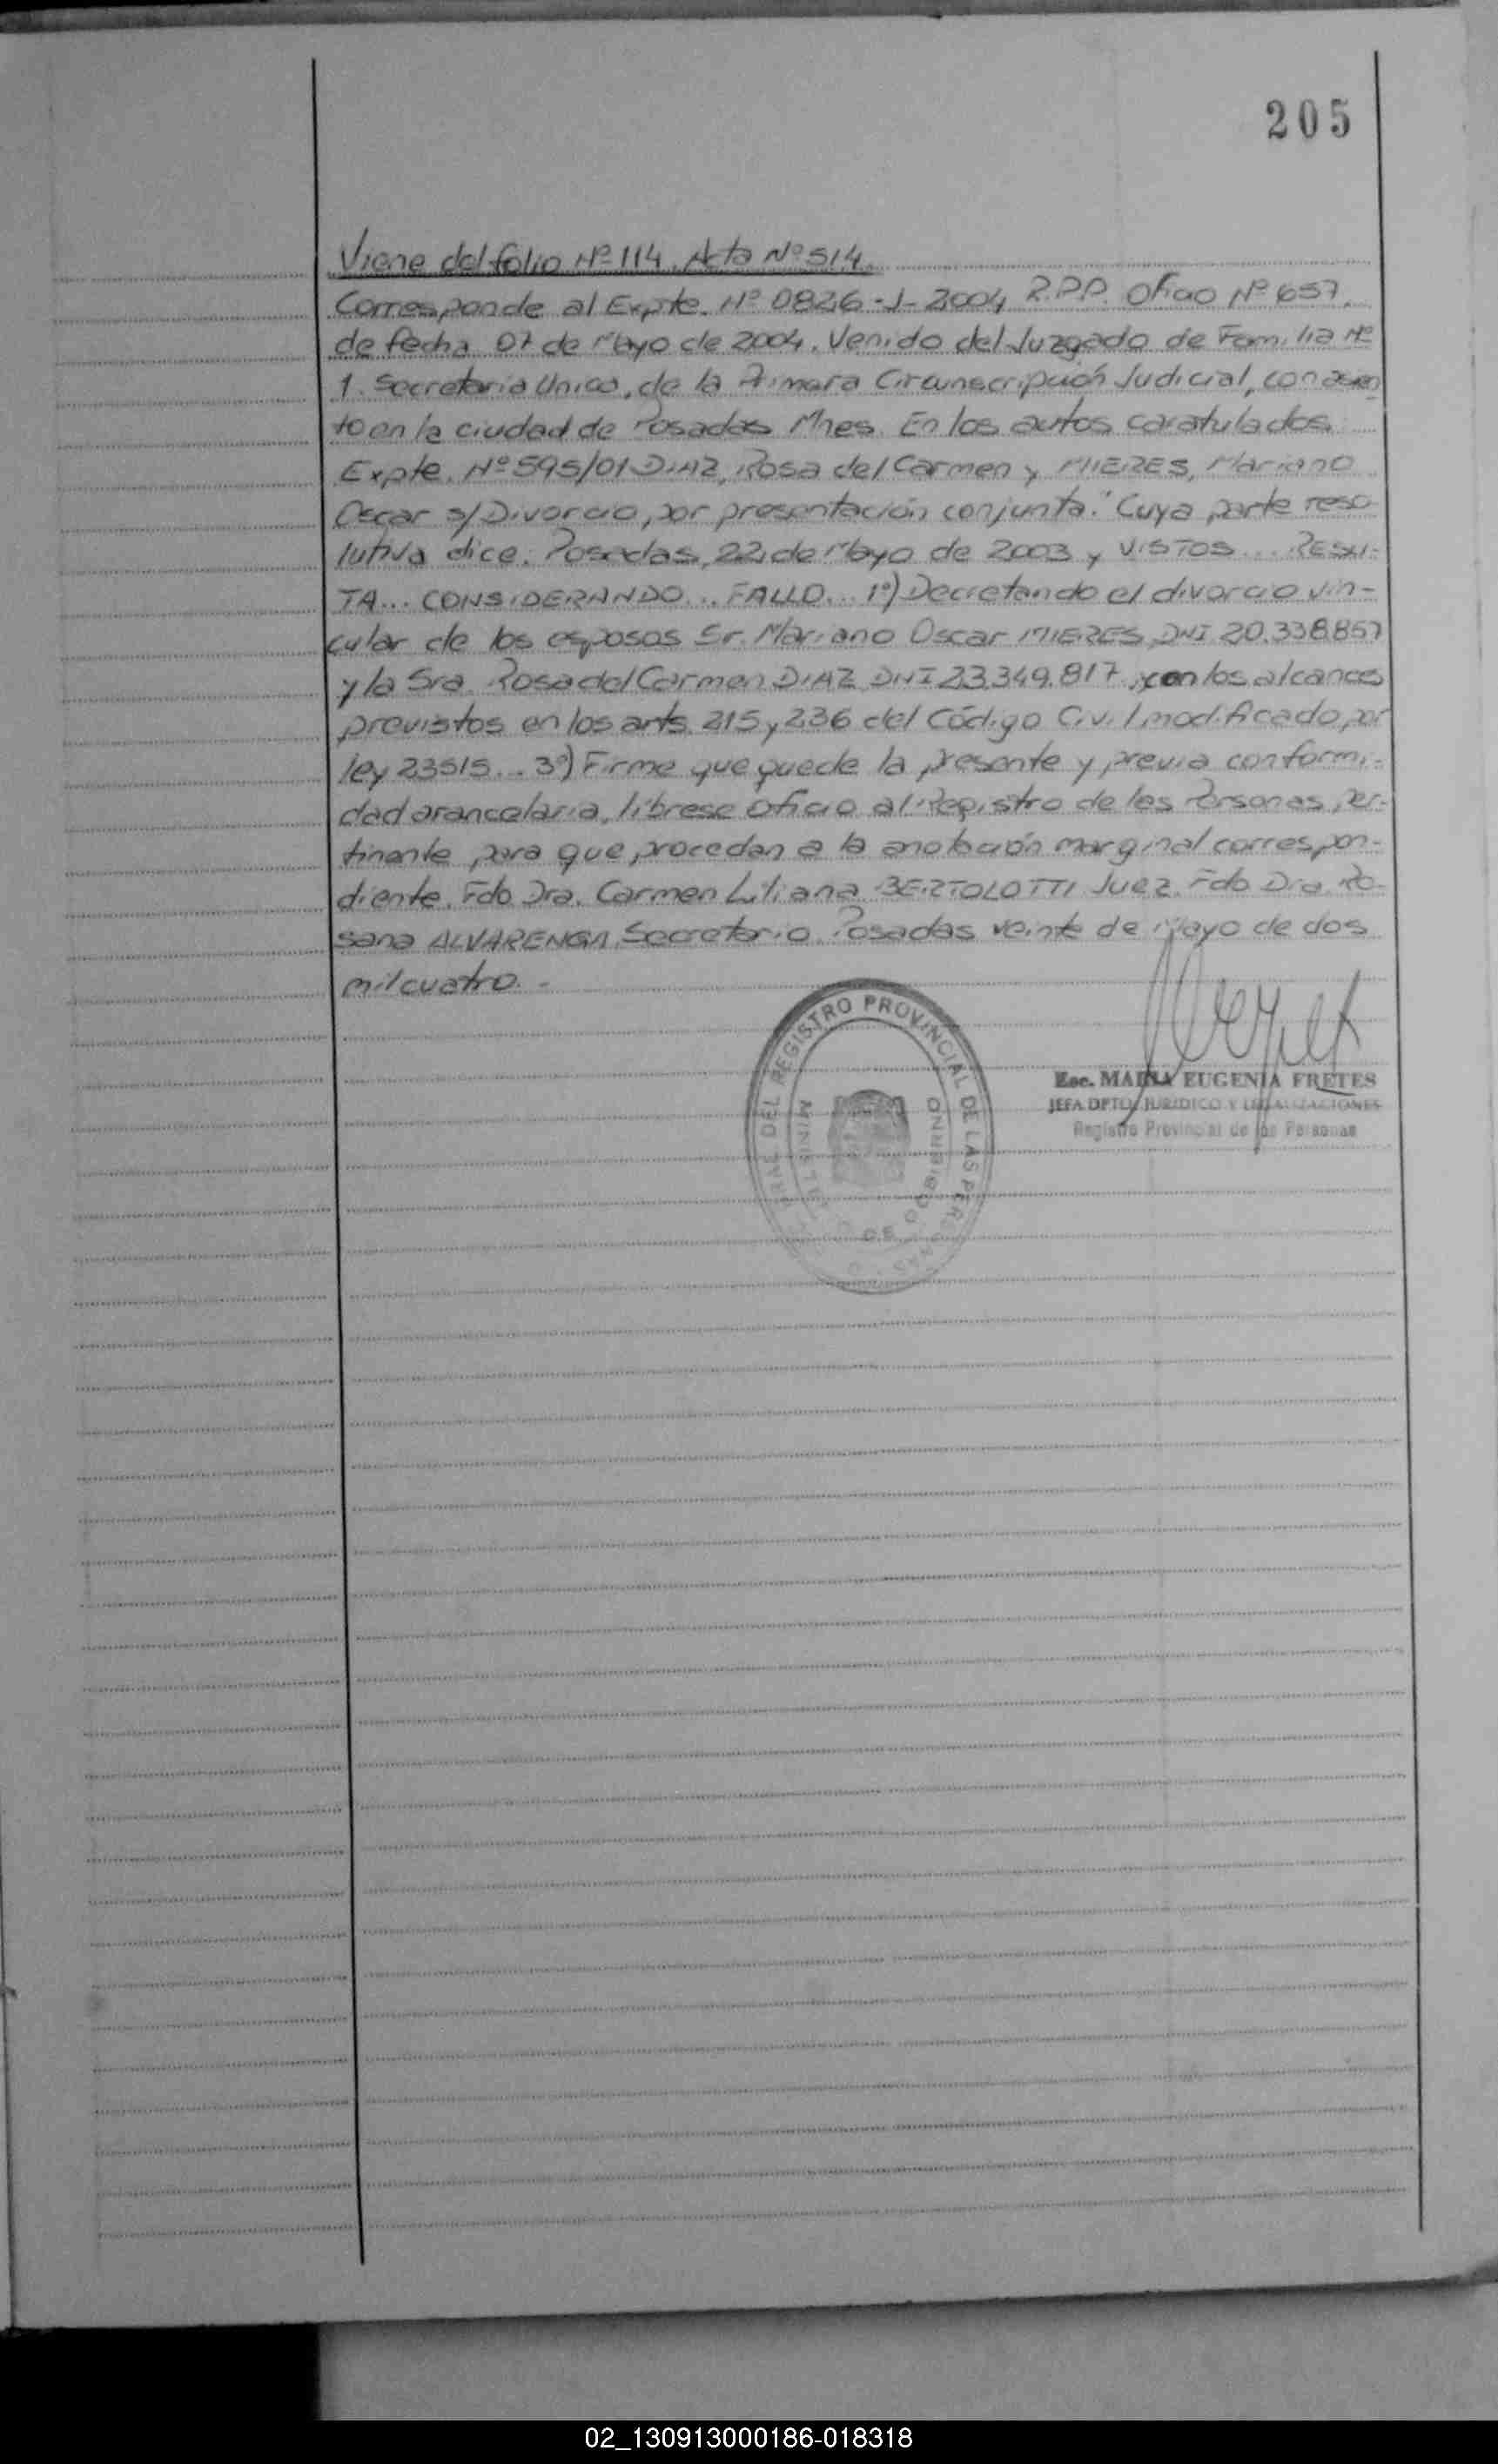 205
Viene del folio Nº 114. Acta Nº 514.
Corresponde al Expte. Nº 0826-J-2004 R.P.P. Oficio Nº 657.
de fecha 07 de Mayo de 2004. Venido del Juzgado de Familia Nº
1. Secretaria Unica, de la Primera Circunscripción Judicial, con asien
to en la ciudad de Posadas Mnes. En los autos caratulados
Expte. Nº 595/01 DIAZ, Rosa del Carmen y MIERES, Mariano
Oscar s/ Divorcio, por presentación conjunta." Cuya parte reso-
lutiva dice: Posadas, 22 de Mayo de 2003 y VISTOS... RESUL-
TA... CONSIDERANDO... FALLO... 1º) Decretando el divorcio vin-
cular de los esposos Sr. Mariano Oscar MIERES DNI 20.338.857
y la Sra. Rosa del Carmen DIAZ DNI 23.349.817, con los alcances
previstos en los arts. 215 y 236 del Código Civil modificado por
ley 23515... 3º) Firme que quede la presente y previa conformi-
dad arancelaria, líbrese oficio al Registro de las Personas per-
tinente para que procedan a la anotación marginal correspon-
diente. Fdo Dra. Carmen Liliana BERTOLOTTI Juez. Fdo Dra. Ro-
sana ALVARENGA Secretario. Posadas veinte de Mayo de dos
mil cuatro. -
DEL REGISTRO PROVINCIAL DE LAS PERSONAS
MINISTERIO DE GOBIERNO
Esc. MARIA EUGENIA FRETES
JEFA DPTO JURIDICO Y LEGALIZACIONES
Registro Provincial de las Personas
02_130913000186-018318